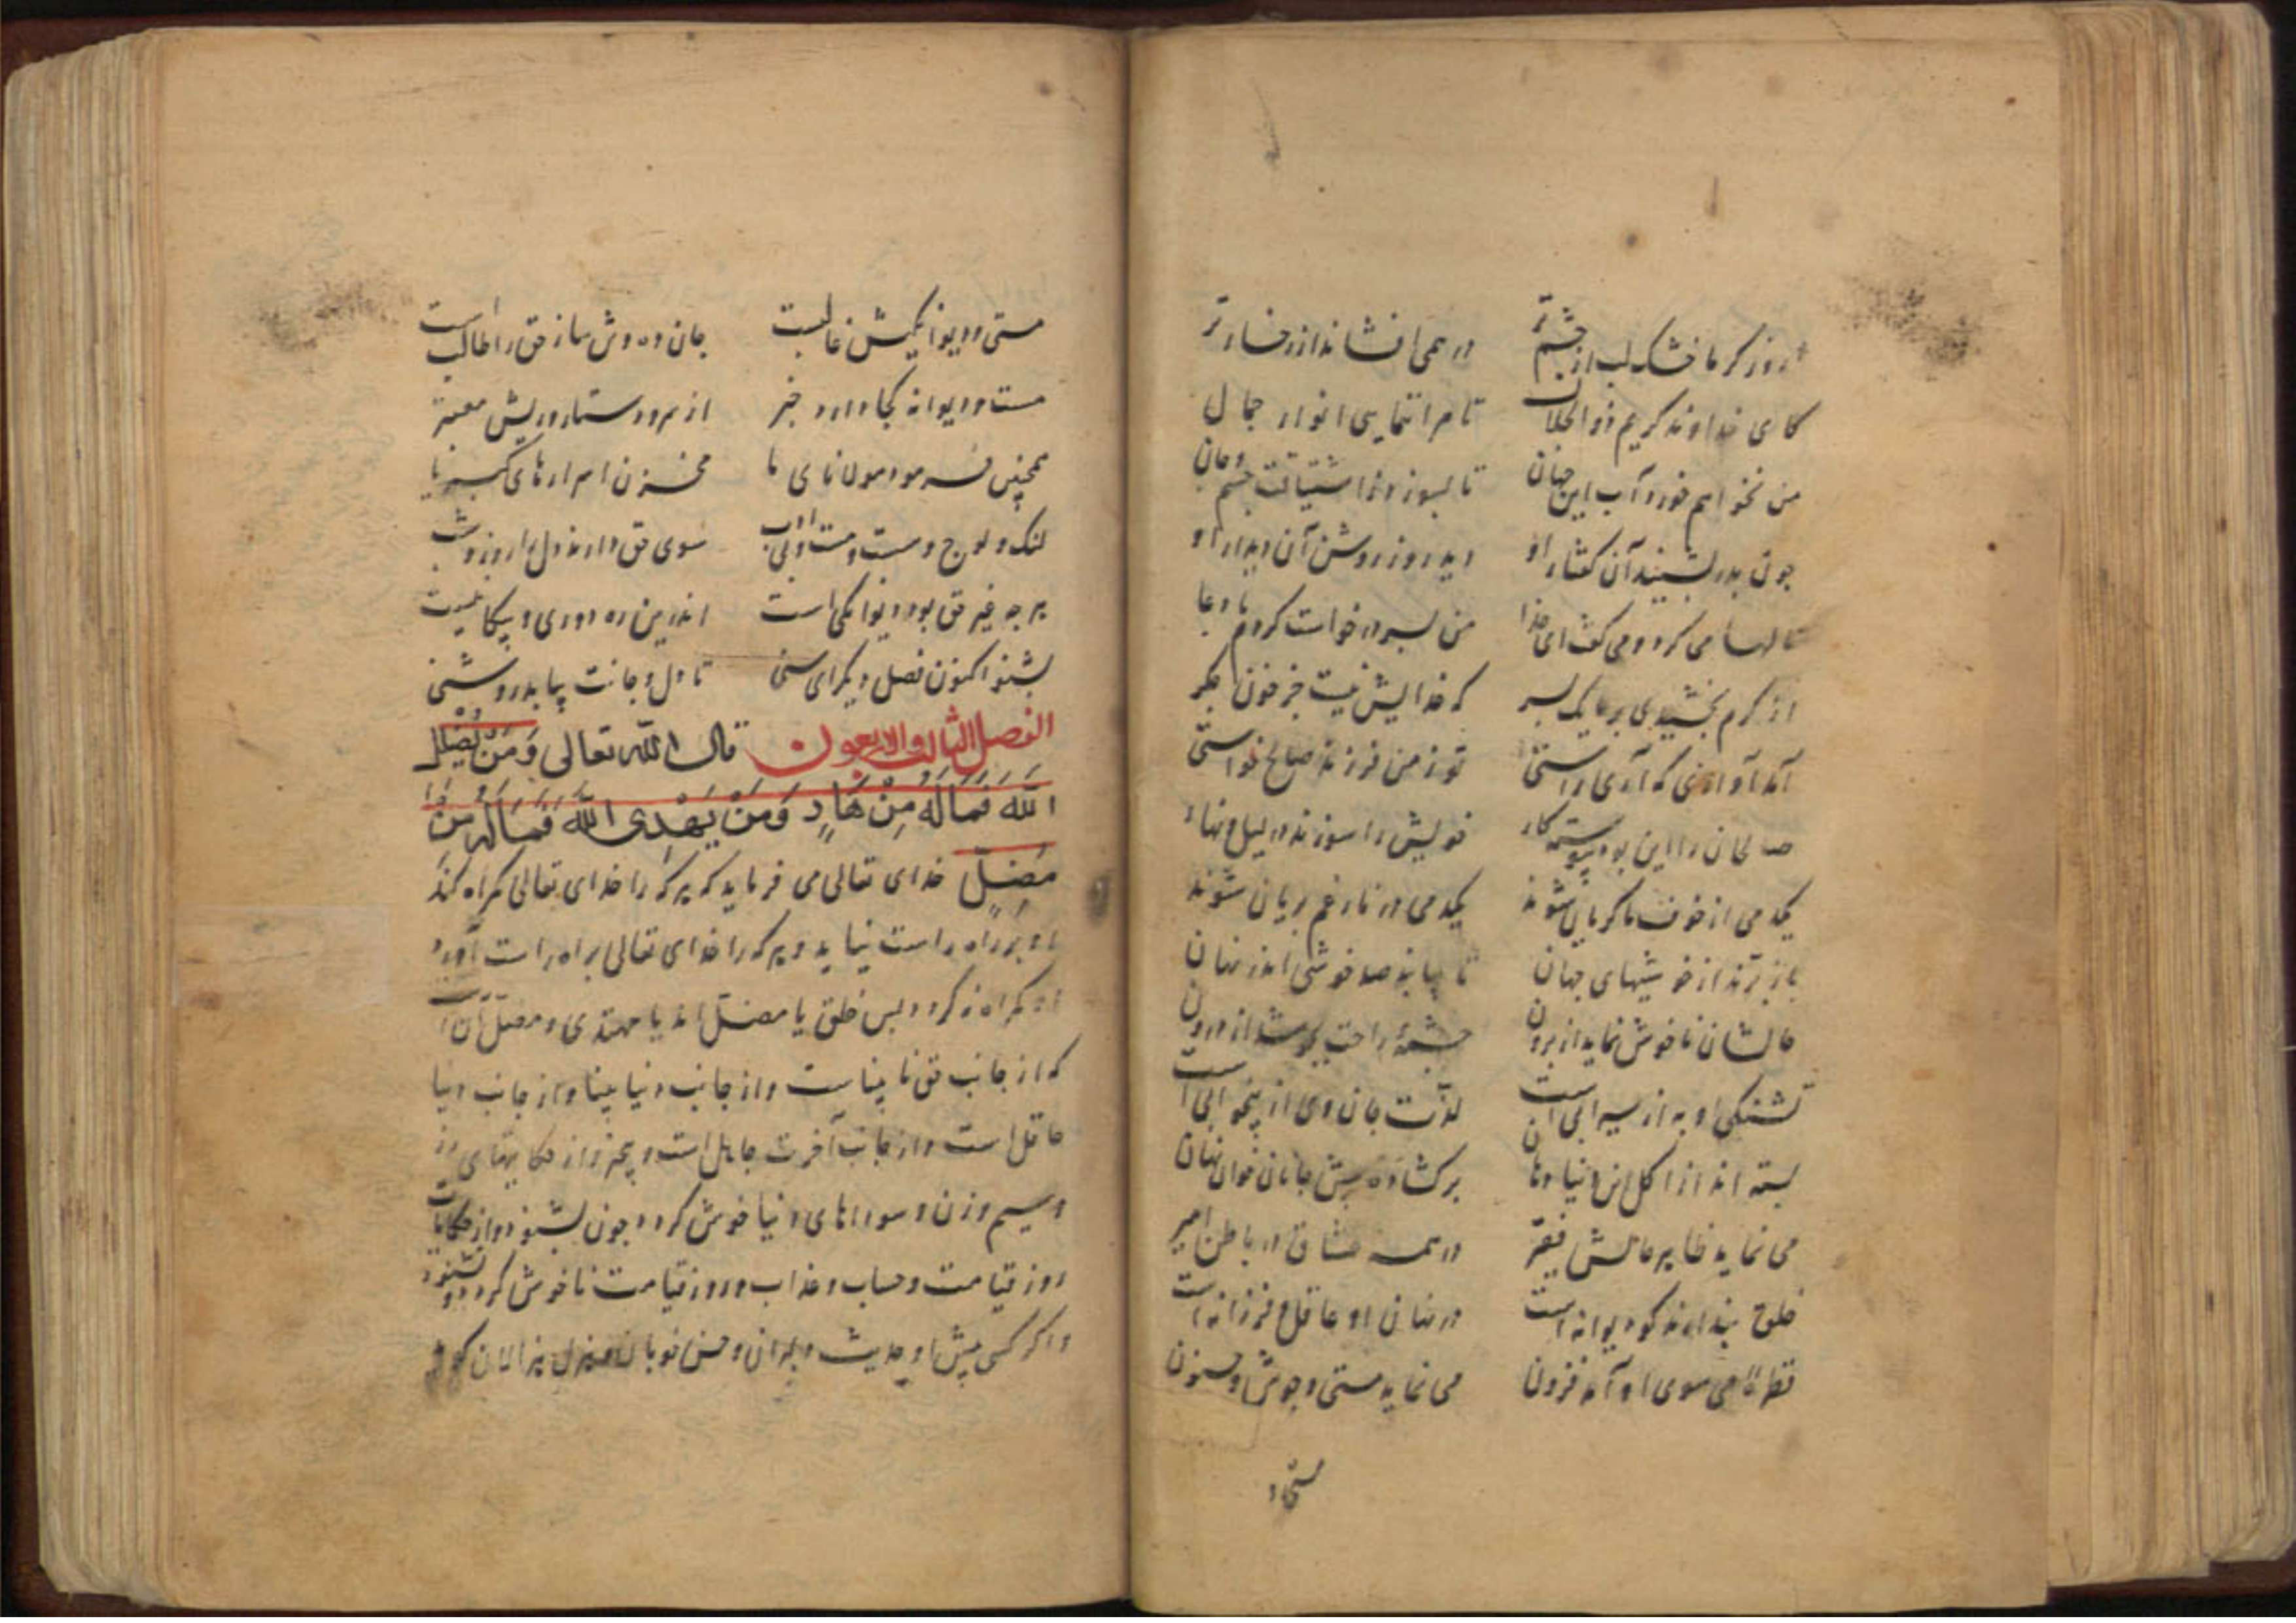 روز گرما خشک لب از چشم تر در همی افشاند از رخسار تر
کای خداوند کریم ذوالجلال تا مرا ننمایی انوار جمال
من نخواهم خورد آب این جهان تا بسوزد ز اشتیاقت جسم و جان
چون پدر بشنید آن گفتار او دید روز روشن آن دیدار او
نالها می کرد و می گفت ای خدا من پسر درخواست کردم با دعا
از کرم بخشیدی بر ما یک پسر که غذایش نیست جز خون جگر
آمد آوازی که آری راستی تو ز من فرزند صالح خواستی
صالحان را این بود پیوسته کار خویش را سوزند در لیل و نهار
یکدمی از خوف ما گریان شوند یکدمی در نار غم بریان شوند
باز برند از خوشیهای جهان تا بیابند صد خوشی اندر نهان
حالشان ناخوش نماید از برون چشمهٔ راحت بجوشد از درون
تشنگی او به از سیرابی است لذت جان وی از بیخوابی است
بسته اند از اکل نان دنیا دهان برگشاده پیش جانان خوان نهان
می نماید ظاهر حالش فقیر در همه عشاق در باطن امیر
خلق پندارند کو دیوانه است در نهان او عاقل و فرزانه است
قطره می سوی او آمد فزون می نماید مستی و جوش و جنون
مستی و دیوانگیش غالبست جان ده وش ساز حق را طالبست
مست و دیوانه کجا دارد خبر از سر و دستار و ریش معتبر
همچنین فرمود مولانای ما مخزن اسرارهای کبریا
لنک و لوج و مست و بی ادب سوی حق دارند دل را روز و شب
هرچه غیر حق بود دیوانگی است اندرین ره دوری و بیگانگیست
بشنو اکنون فصل دیگر ای سنی تا دل و جانت بیابد روشنی
الفصل الثالث والاربعون قال الله تعالی وَمَنْ یُضْلِلِ
اللهُ فَمَا لَهُ مِنْ هَادٍ وَمَنْ یَهْدِی اللهُ فَمَا لَهُ مِنْ
مُضِلٍّ خدای تعالی می فرماید که هر که را خدای تعالی گمراه کند
او بر راه راست نیاید و هر که را خدای تعالی براه راست آورد
او گمراه نگردد پس خلق یا مضل اند یا مهتدی و مضل آن است
که از جانب حق نابیناست و از جانب دنیا بینا و از جانب دنیا
عاقل است و از جانب آخرت جاهل است و بیخبر و از حکایتهای زر
و سیم و زن و سوداهای دنیا خوش گردد چون بشنود و از حکایات
روز قیامت و حساب و عذاب و روز قیامت ناخوش گردد چو بشنود
و اگر کسی پیش او حدیث دلبران و حسن خوبان و هزل هزالان گوید